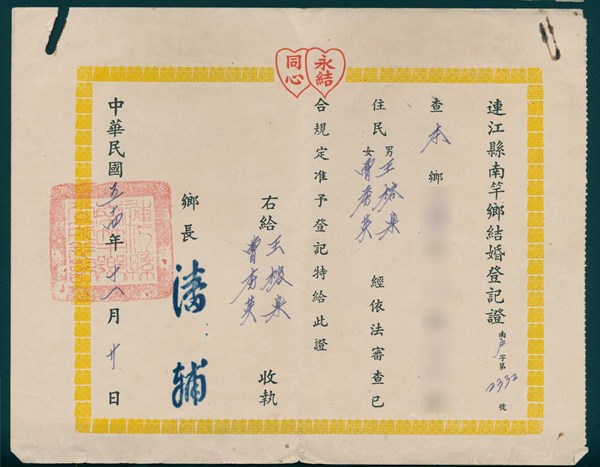 永結
同心
連江縣南竿鄉結婚登記證
南戶字第2332號
查本鄉
住民
男王
女曹秀英
經依法審查已
合規定准予登記特給此證
右給
王
曹秀英
收執
鄉長
潘輔
中華民國五十四年十八月廿日